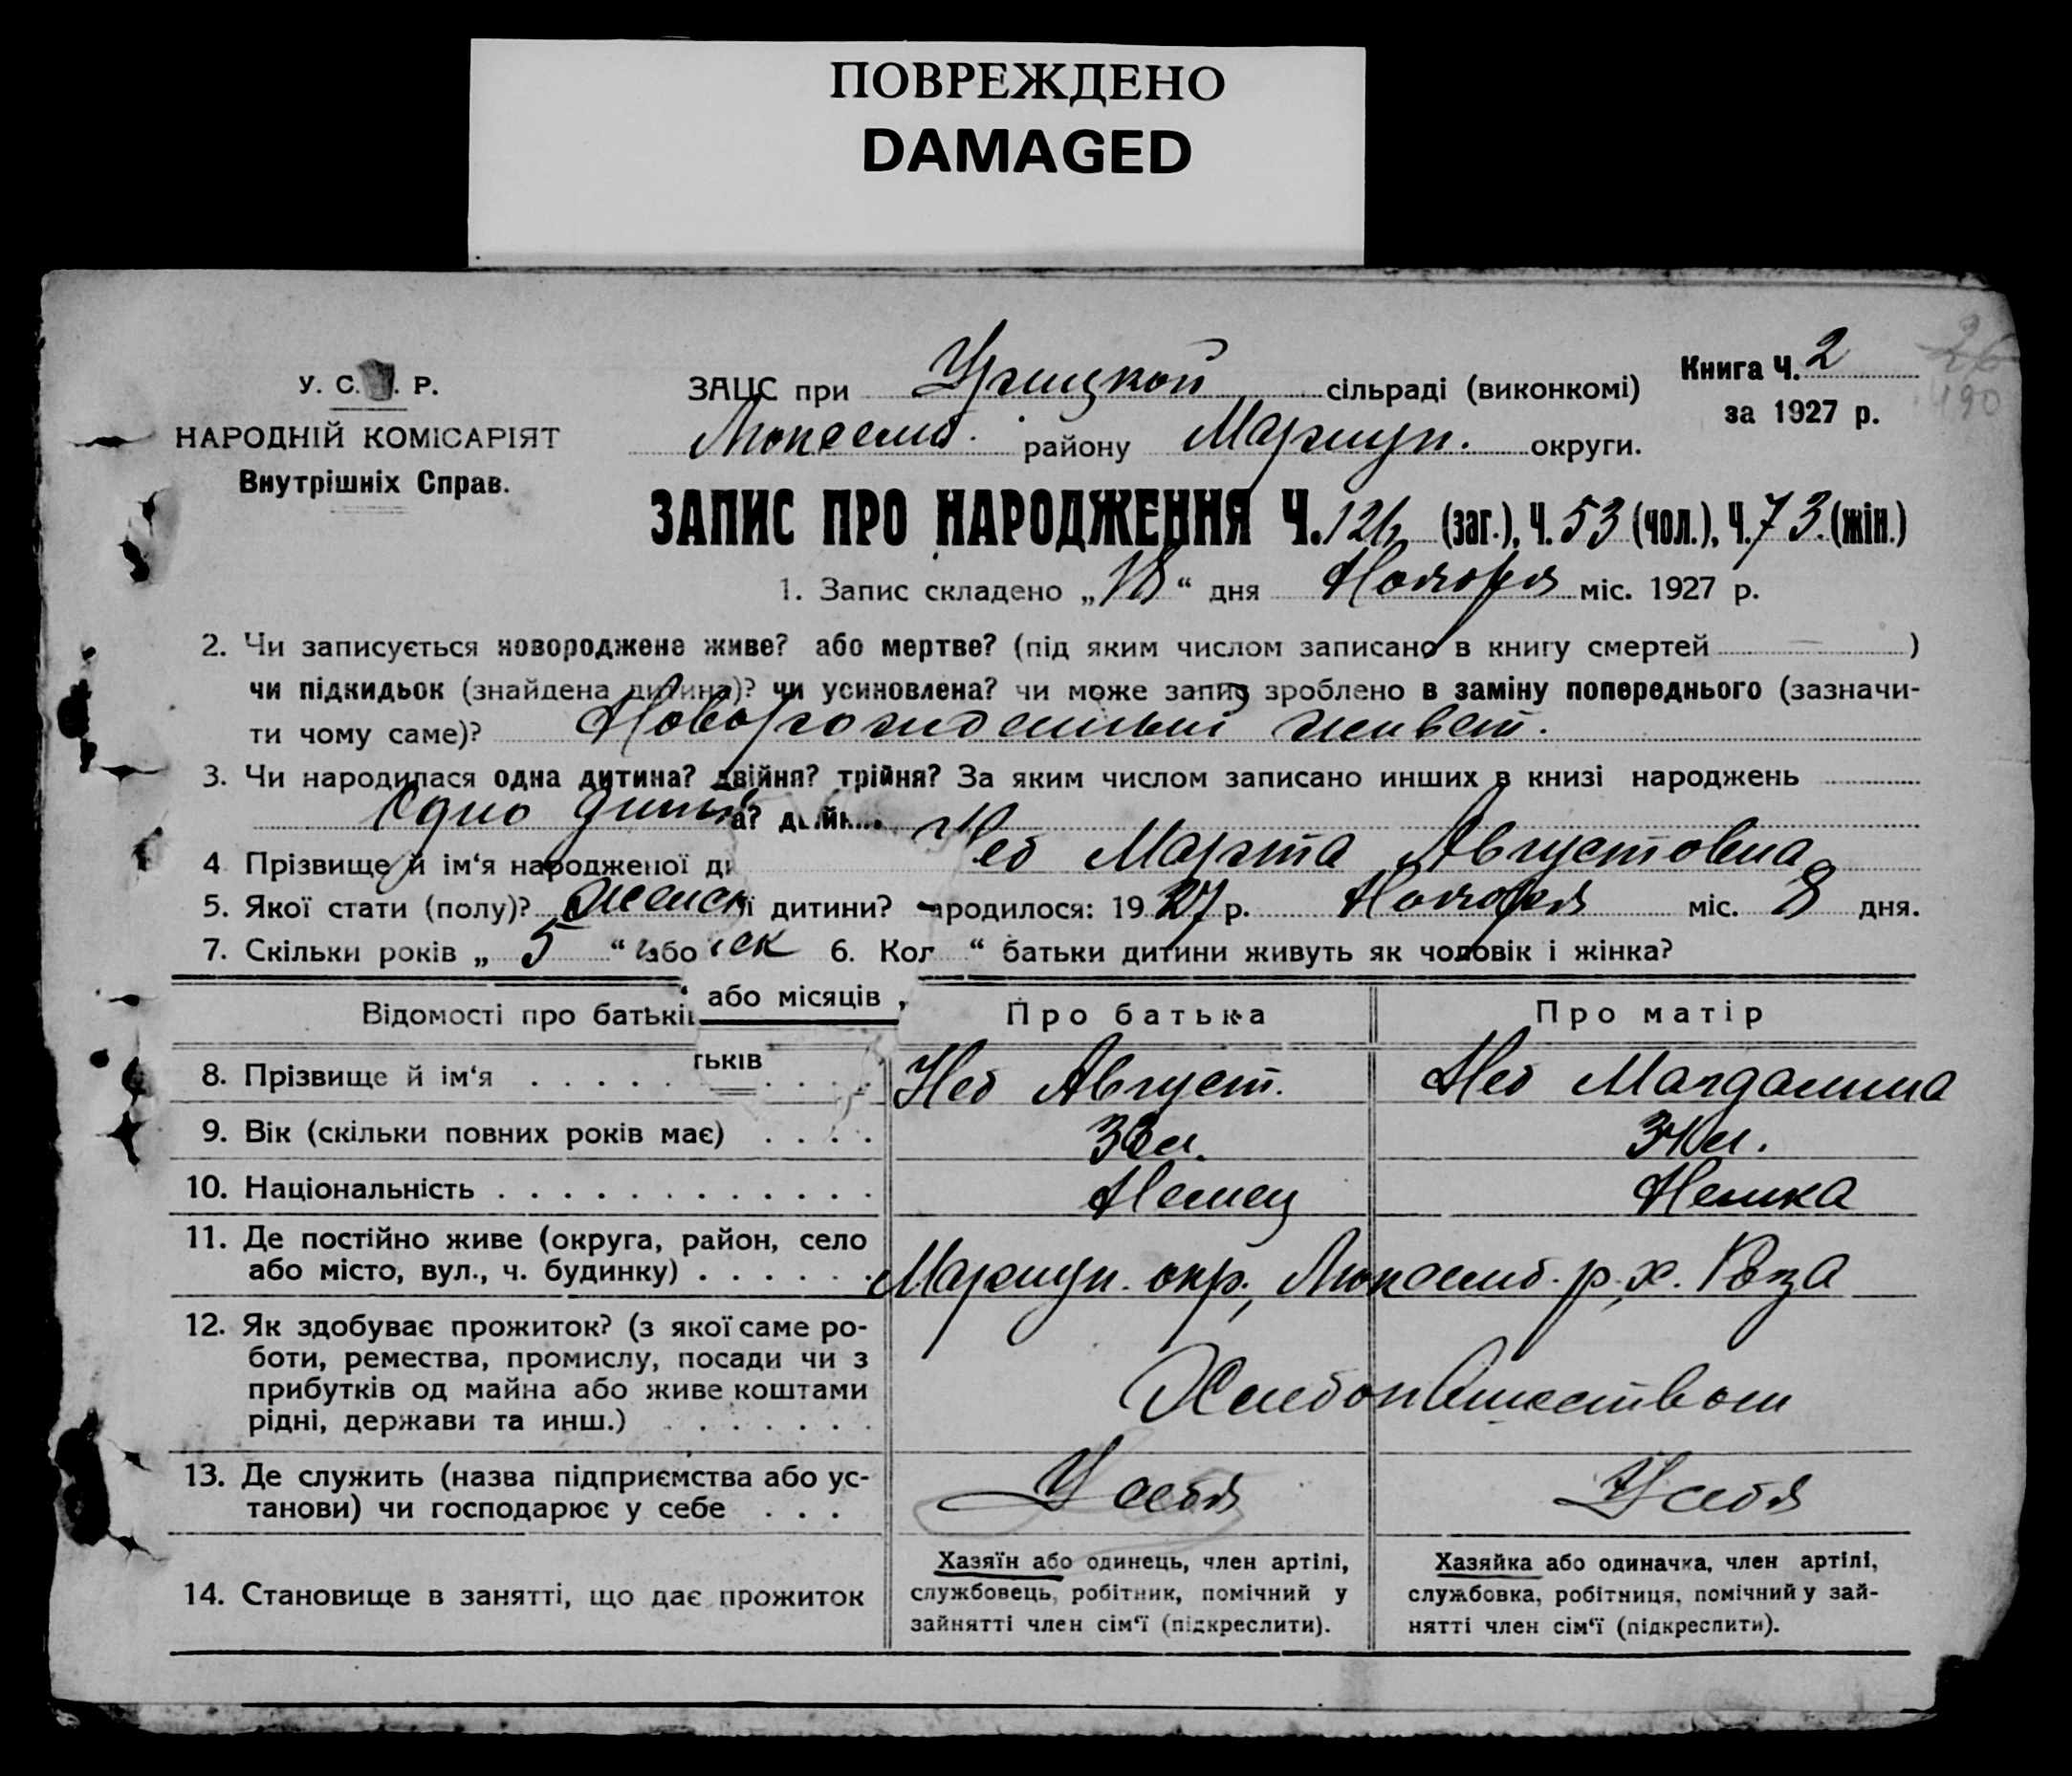 ПОВРЕЖДЕНО
DAMAGED
У. С. . Р.
НАРОДНІЙ КОМІСАРІЯТ
Внутрішніх Справ.
ЗАЦС при Урицкой сільраді (виконкомі)
Люксемб. району Мариуп. округи.
Книга Ч. 2
за 1927 р.
26
490
ЗАПИС ПРО НАРОДЖЕННЯ Ч. 126 (заг.), Ч. 53 (чол.), Ч. 73. (жін.)
1. Запис складено „18“ дня Ноября міс. 1927 р.
2. Чи записується новороджене живе? або мертве? (під яким числом записано в книгу смертей — )
чи підкидьок (знайдена дитина)? чи усиновлена? чи може запис зроблено в заміну попереднього (зазначи-
ти чому саме)? Новорожденный живой.
3. Чи народилася одна дитина? двійня? трійня? За яким числом записано инших в книзі народжень
Одно дитя
а? двійн
4 Прізвище й ім‘я народженої ди Неб Марта Августовна
5. Якої стати (полу)? женск ї дитини? ародилося: 1927 р. Ноября міс. 8 дня.
7. Скільки років „ 5 “ або 6. Кол “ батьки дитини живуть як чоловік і жінка?
“ або місяців „
Відомості про батьків
тьків
Про батька
Про матір
8. Прізвище й ім‘я . . . . . . . . Неб Август. Неб Магдалина
9. Вік (скільки повних років має) . . . . 33 л. 34 л.
10. Національність . . . . . . . . . . . . . Немец Немка
11. Де постійно живе (округа, район, село
або місто, вул., ч. будинку) . . . . . . . Мариуп. окр., Люксемб. р. х. Роза
12. Як здобуває прожиток? (з якої саме ро-
боти, ремества, промислу, посади чи з
прибутків од майна або живе коштами
рідні, держави та инш.) . . . . . . .
Хлебопашеством
13. Де служить (назва підприємства або ус-
танови) чи господарює у себе . . .
У себя У себя
14. Становище в занятті, що дає прожиток
Хазяїн або одинець, член артілі,
службовець, робітник, помічний у
зайнятті член сім‘ї (підкреслити).
Хазяйка або одиначка, член артілі,
службовка, робітниця, помічний у зай-
нятті член сім‘ї (підкреслити).